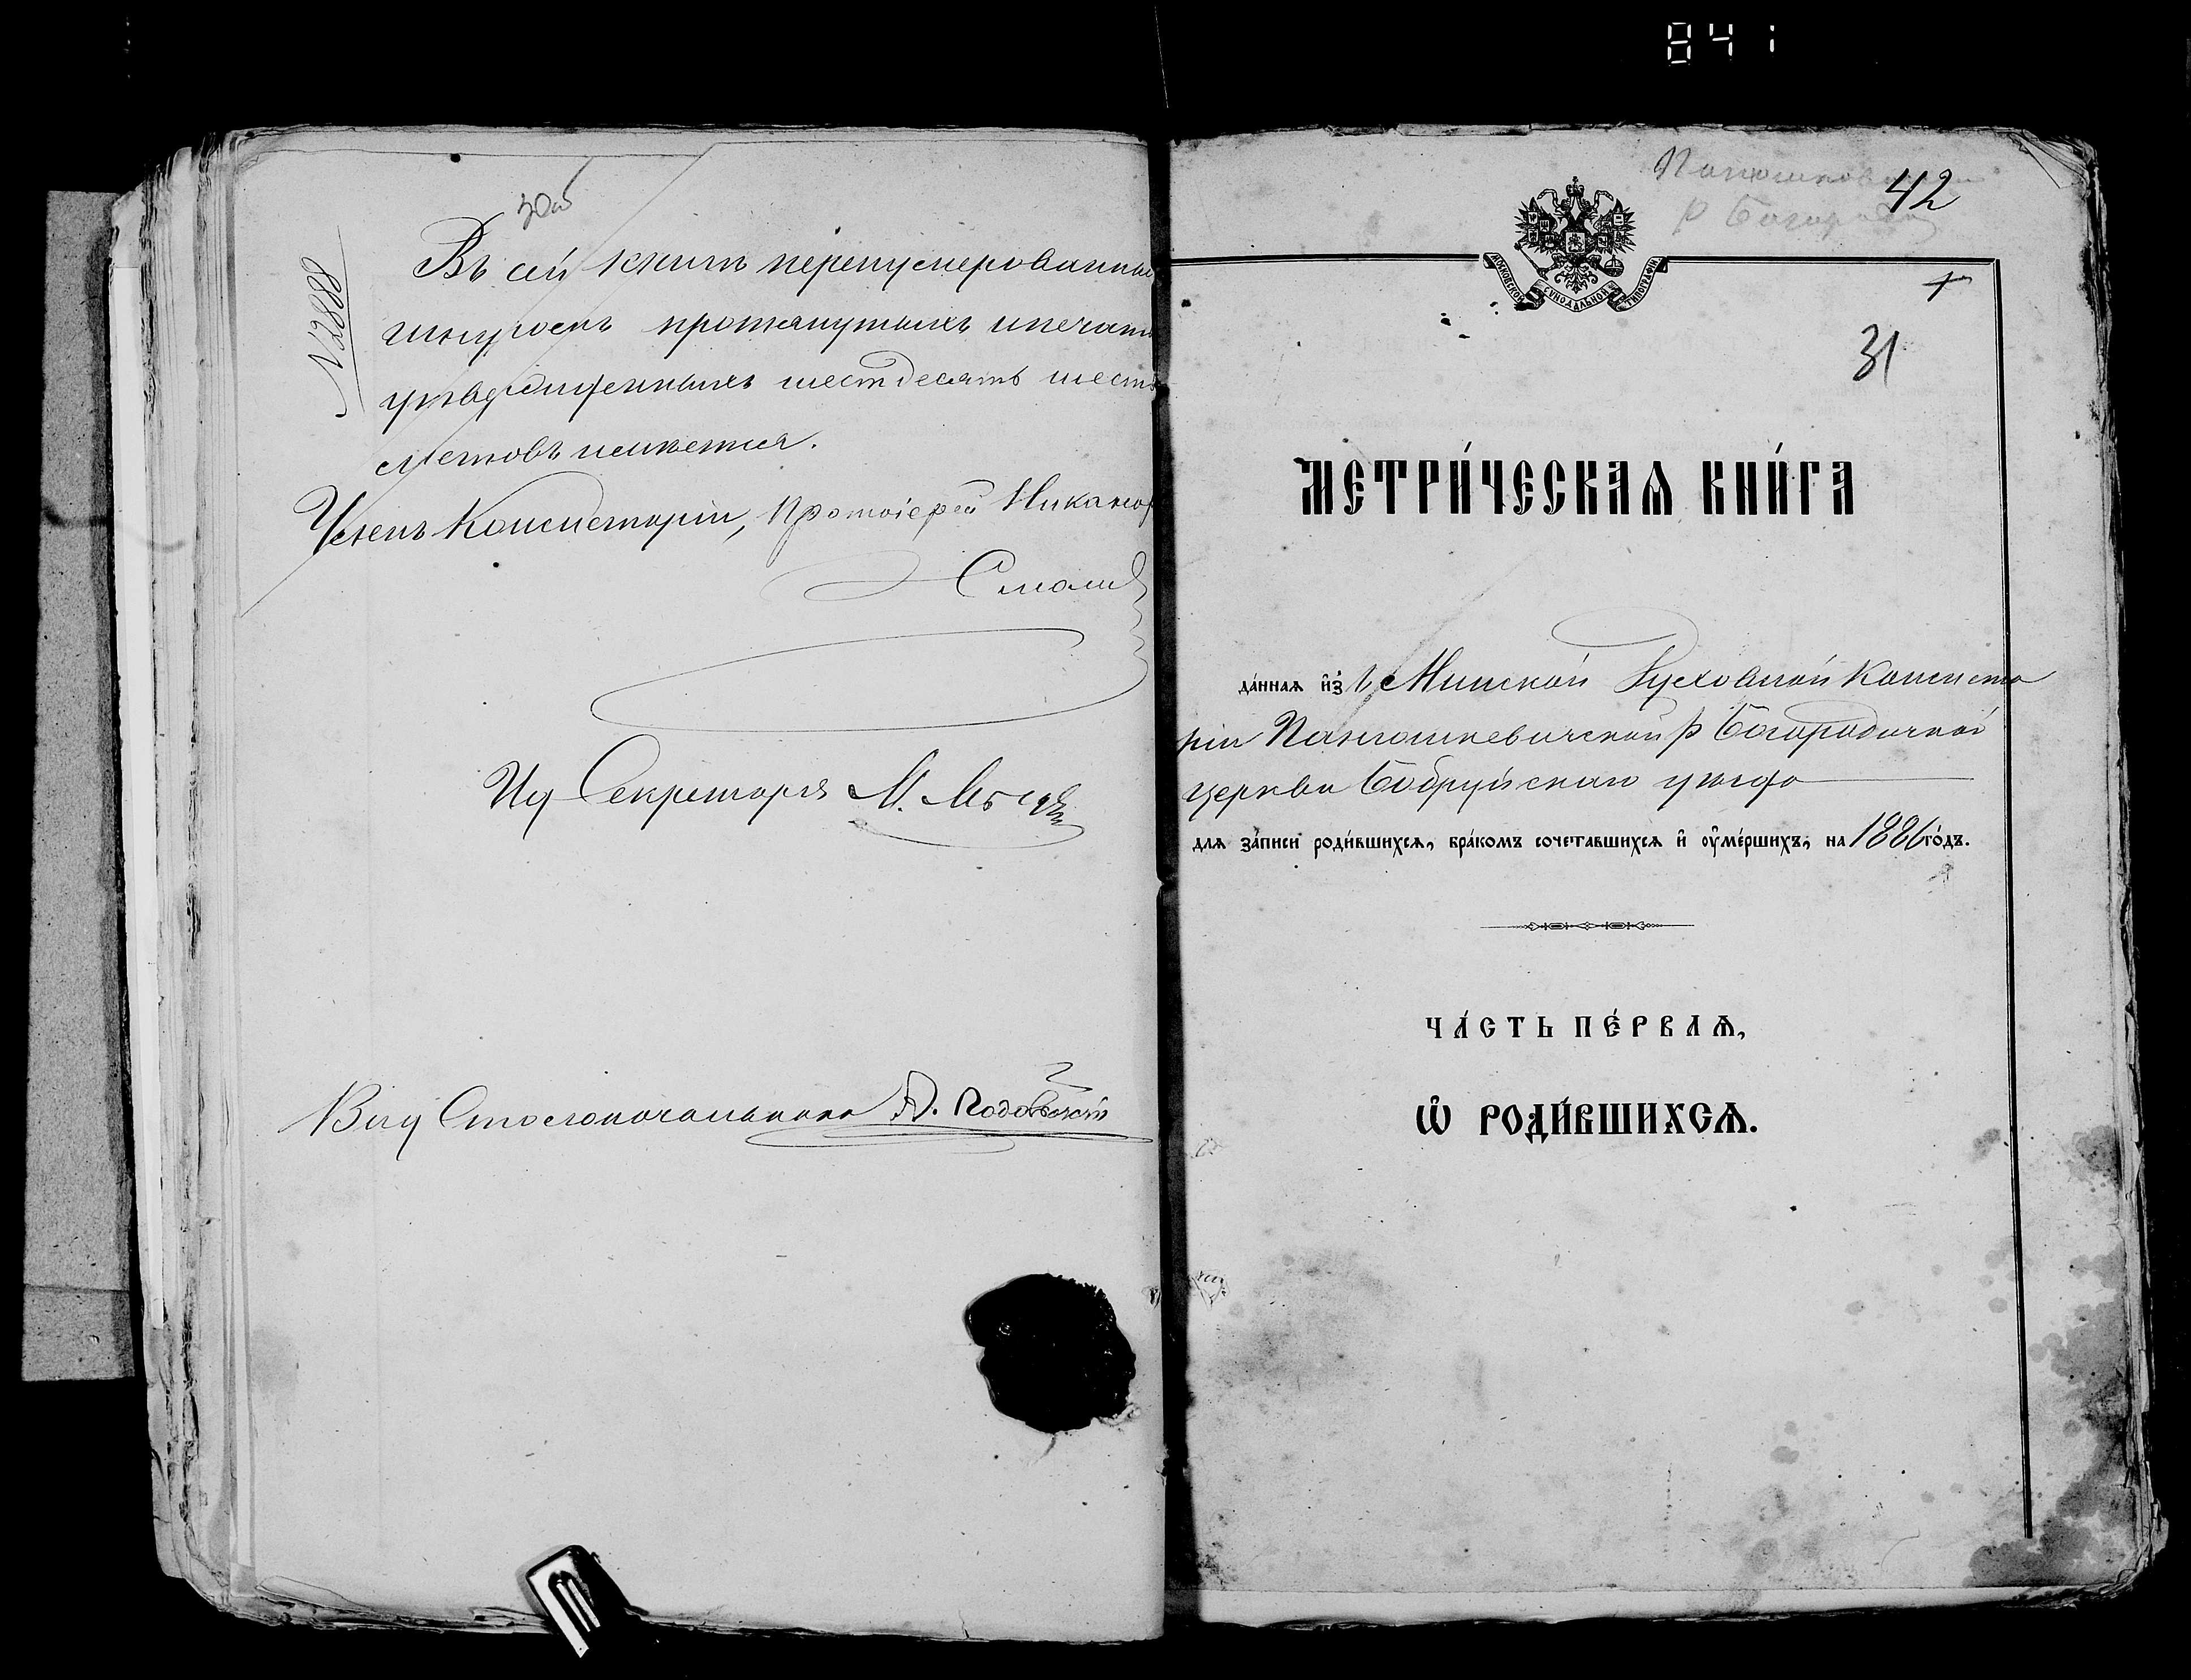 841
30об
№2888
Въ сей книгѣ перенумерованныхъ
шнуромъ протянутыхъ и печатью
утвержденныхъ шестдесятъ шесть
листовъ имѣется.
Членъ Консисторіи, Протоіерей Никаноръ
Смолич
Иц Секретаря М.
Вмц Столоначальника А.
42
Р Богород
МОСКОВСКОЙ СѴНОДАЛЬНОЙ ТИПОГРАФІИ
31
МЕТРИ́ЧЕСКАѦ КНИ́ГА
да́ннаѧ и҆з̾ъ Минской Духовной Консисто
ріи Панюшкевичской Р Богородичной
церкви Бобруйскаго уѣзда
для за́писи роди́вшихсѧ, бра́комъ сочета́вшихсѧ и҆ ѹ҆ме́ршихъ, на 1886 го́дъ.
ЧА́СТЬ ПЕ́РВАѦ,
Ѡ҆ РОДИ́ВШИХСѦ.